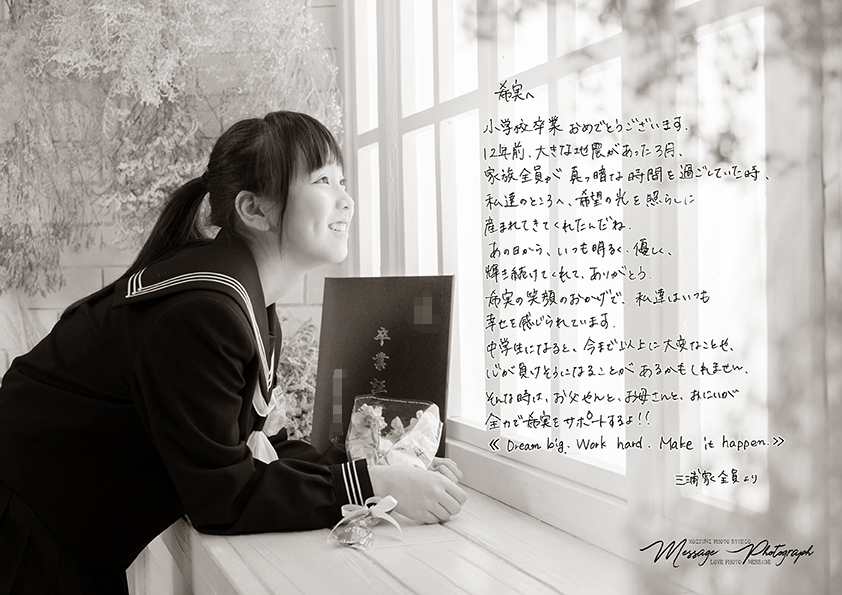 希実へ
小学校卒業 おめでとうございます.
12年前、大きな地震があった3月、
家族全員が 真っ暗な時間を過ごしていた時、
私達のところへ、希望の光を照らしに
産まれてきてくれたんだね.
あの日から、いつも明るく、優しく、
輝き続けてくれて、ありがとう.
希実の笑顔のおかげで、私達はいつも
幸せを感じられています.
中学生になると、今まで以上に大変なことや、
心が負けそうになることが あるかもしれません.
そんな時は、お父さんと、お母さんと、おにいが
全力で希実をサポートするよ!!
《 Dream big. Work hard. Make it happen. 》
三浦家全員より
卒業証
KOIZUMI PHOTO STUDIO
Message Photograph
LOVE PHOTO MESSAGE